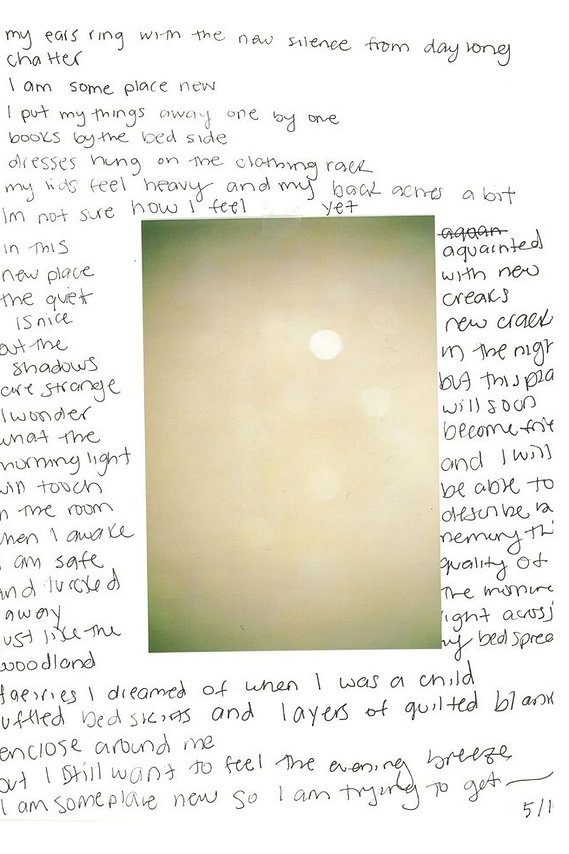 my ears ring with the new silence from day long
chatter
I am some place new
I put my things away one by one
books by the bed side
dresses hung on the clothing rack
my lids feel heavy and my back aches a bit
Im not sure how I feel yet
in this
new place
the quiet
is nice
out the
shadows
are strange
I wonder
what the
morning light
will touch
n the room
when I awake
I am safe
and tucked
away
ust like the
woodland
faeiries I dreamed of when I was a child
uffled bedskirts and layers of quilted blank
enclose around me
but I still want to feel the evening breeze
I am someplace new so I am trying to get
aquainted
with new
creaks
new crack
in the nigh
but this pla
will soon
become frie
and I will
be able to
describe
memory th
quality of
the morning
light across
my bedspree
5/1